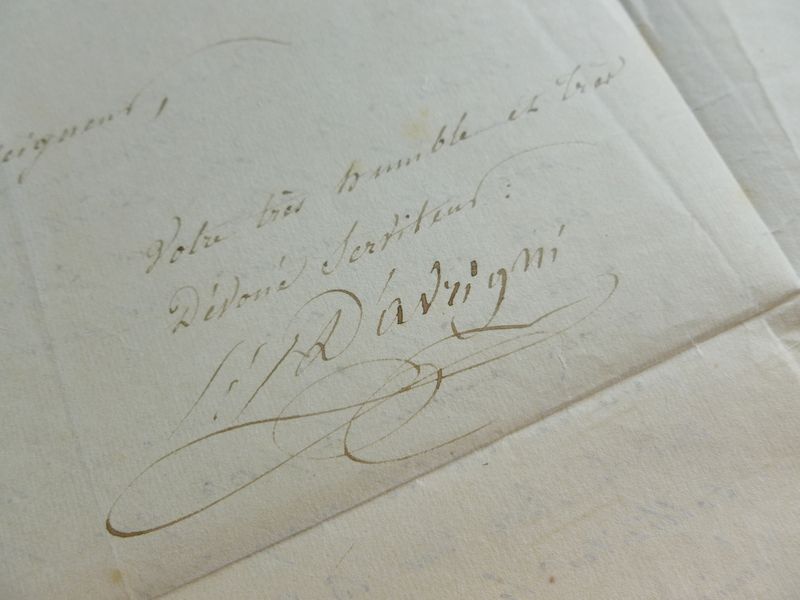 eigneur,
Votre très humble et très
Dévoué Serviteur:
D'avrigni